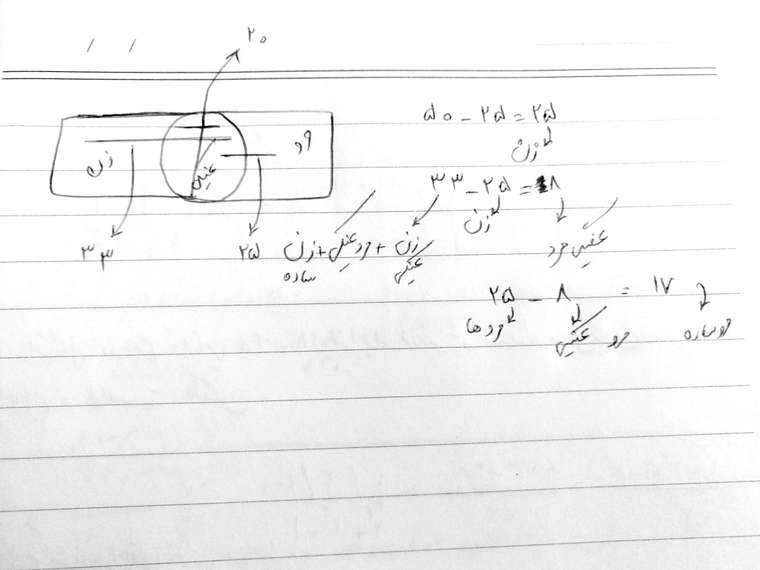 ۲۰
زن
عینکی
مرد
۳۳
۲۵
۵۰ - ۲۵ = ۲۵
زن
۳۳ - ۲۵ = ۸
زن
عینکی مرد
زن عینکی + مرد عینکی + زن ساده
۲۵ - ۸ = ۱۷
مردها
مرد عینکی
مرد ساده